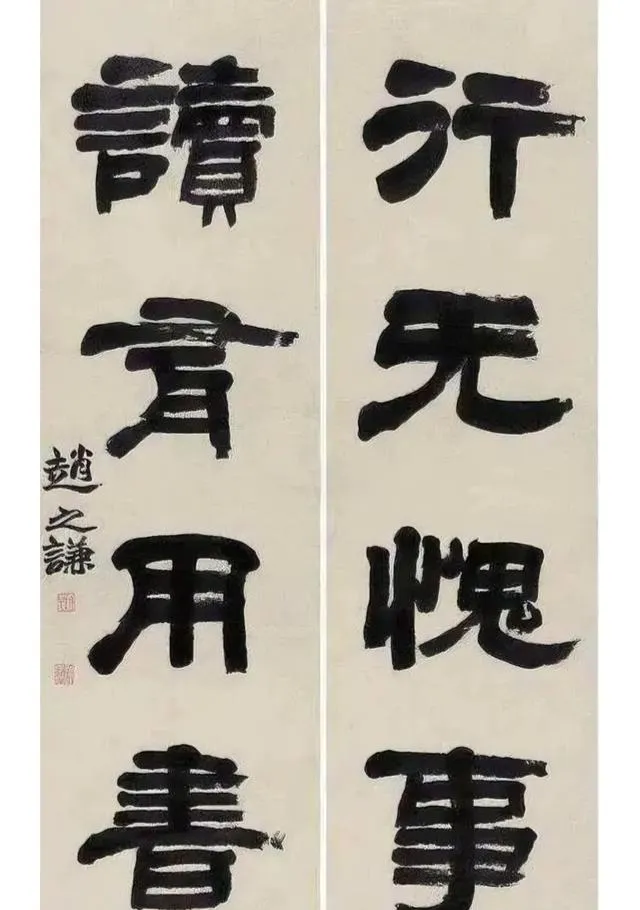 行无愧事
讀有用書
趙之謙